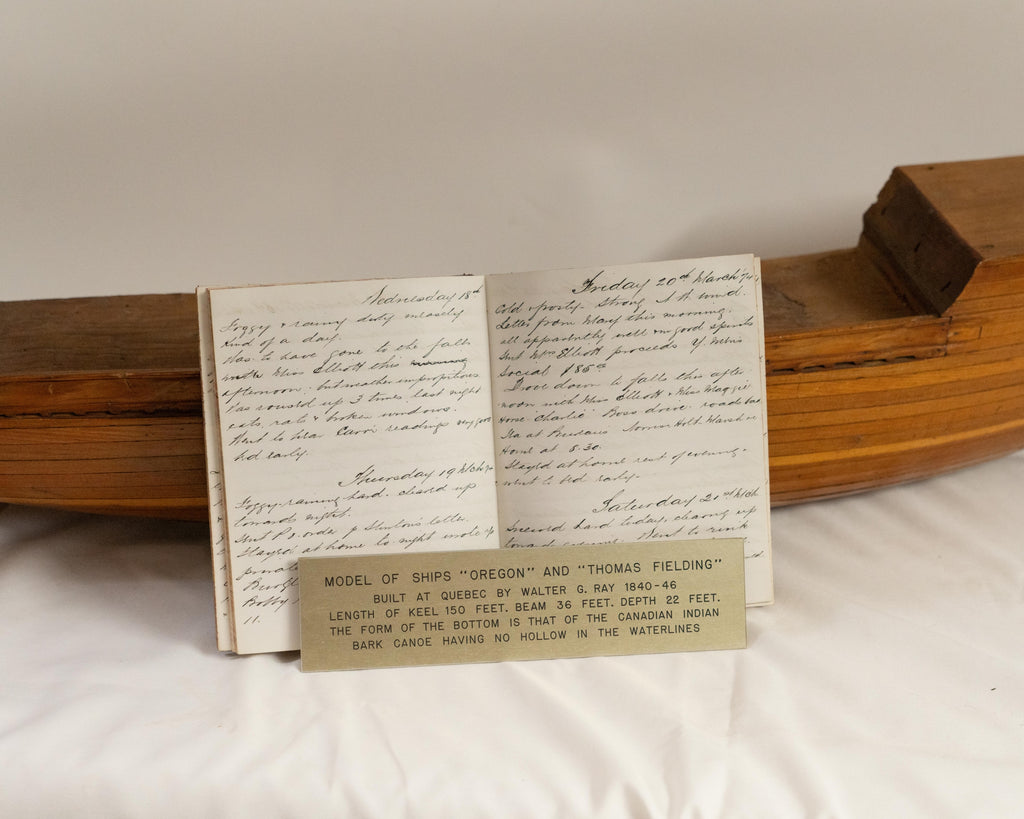 Wednesday 18th
Foggy & rainy duty
kind of a day.
Was to have gone to the falls
with Miss Elliott this morning
afternoon. but weather
Was roused up 3 times last night
cats, rats & broken windows.
Went to hear readings very good
bd early.
Thursday 19
Foggy raining hard. cleard up
towards night.
Sent P.o. order letter.
Stayed at home to-night wrote
11.
Friday 20th March 74
Cold frosty. Strong wind.
Letter from Mary this morning.
all apparently well in good spirits
Sent Mrs Elliott proceeds Y. Mens
Social
Drove down to falls this after
noon with Miss Elliott & Miss Maggie
Horse Charlie Boss drove. roads bad
Tea at
Home at 8.30.
Stayed at home rest of evening.
went to bed early.
Saturday 21st
Snowed hard today, clearing up
evening. Went to rink
MODEL OF SHIPS "OREGON" AND "THOMAS FIELDING"
BUILT AT QUEBEC BY WALTER G. RAY 1840-46
LENGTH OF KEEL 150 FEET. BEAM 36 FEET. DEPTH 22 FEET.
THE FORM OF THE BOTTOM IS THAT OF THE CANADIAN INDIAN
BARK CANOE HAVING NO HOLLOW IN THE WATERLINES